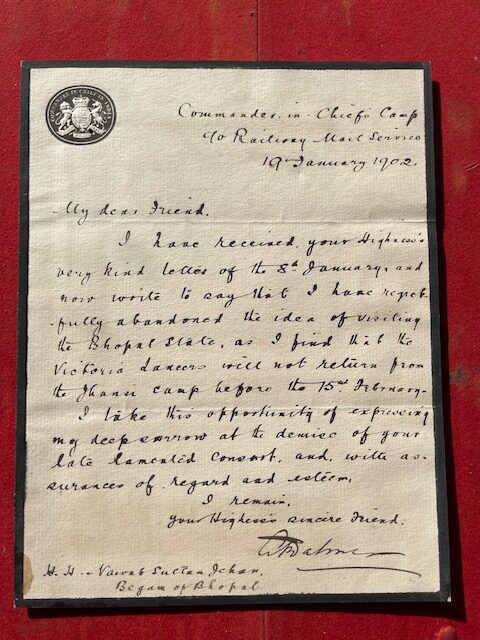 COMMANDER IN CHIEF IN INDIA
Commander-in-Chief's Camp
c/o Railway Mail Service
19th January 1902.
My dear Friend,
I have received your Highness's
very kind letter of the 8th January, and
now write to say that I have regret-
-fully abandoned the idea of visiting
the Bhopal State, as I find that the
Victoria Lancers will not return from
the Jhansi camp before the 15th February.
I take this opportunity of expressing
my deep sorrow at the demise of your
late lamented Consort, and, with as-
surances of regard and esteem,
I remain,
Your Highness's sincere Friend.
H. H. Nawab Sultan Jehan,
Begam of Bhopal